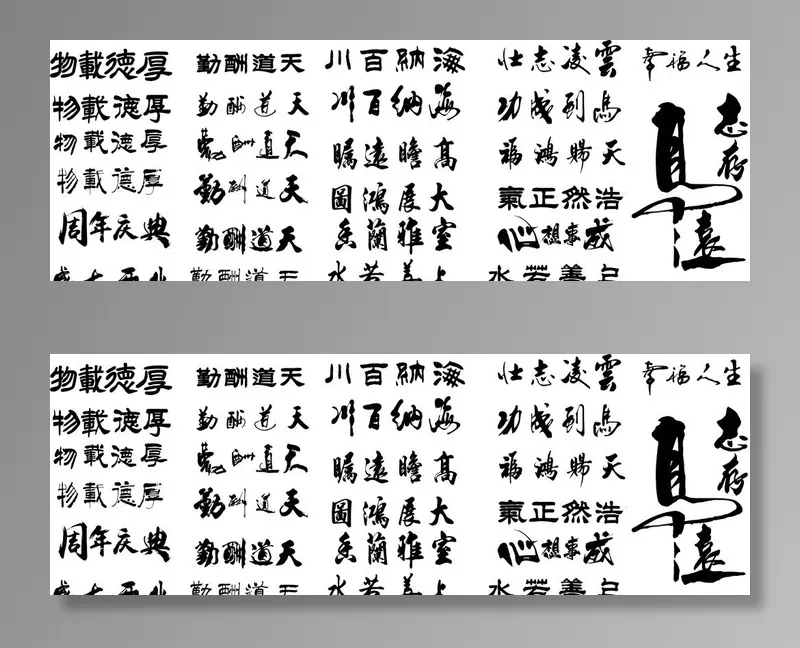 厚德載物
厚德載物
厚德載物
厚德載物
周年庆典
天道酬勤
天道酬勤
天道酬勤
天道酬勤
天道酬勤
天道酬勤
海納百川
海納百川
高瞻遠矚
大展鴻圖
室雅蘭香
上善若水
壮志凌雲
馬到成功
天賜鴻福
浩然正氣
心想事成
上善若水
幸福人生
志存高遠
厚德載物
厚德載物
厚德載物
厚德載物
周年庆典
天道酬勤
天道酬勤
天道酬勤
天道酬勤
天道酬勤
天道酬勤
海納百川
海納百川
高瞻遠矚
大展鴻圖
室雅蘭香
上善若水
壮志凌雲
馬到成功
天賜鴻福
浩然正氣
心想事成
上善若水
幸福人生
志存高遠